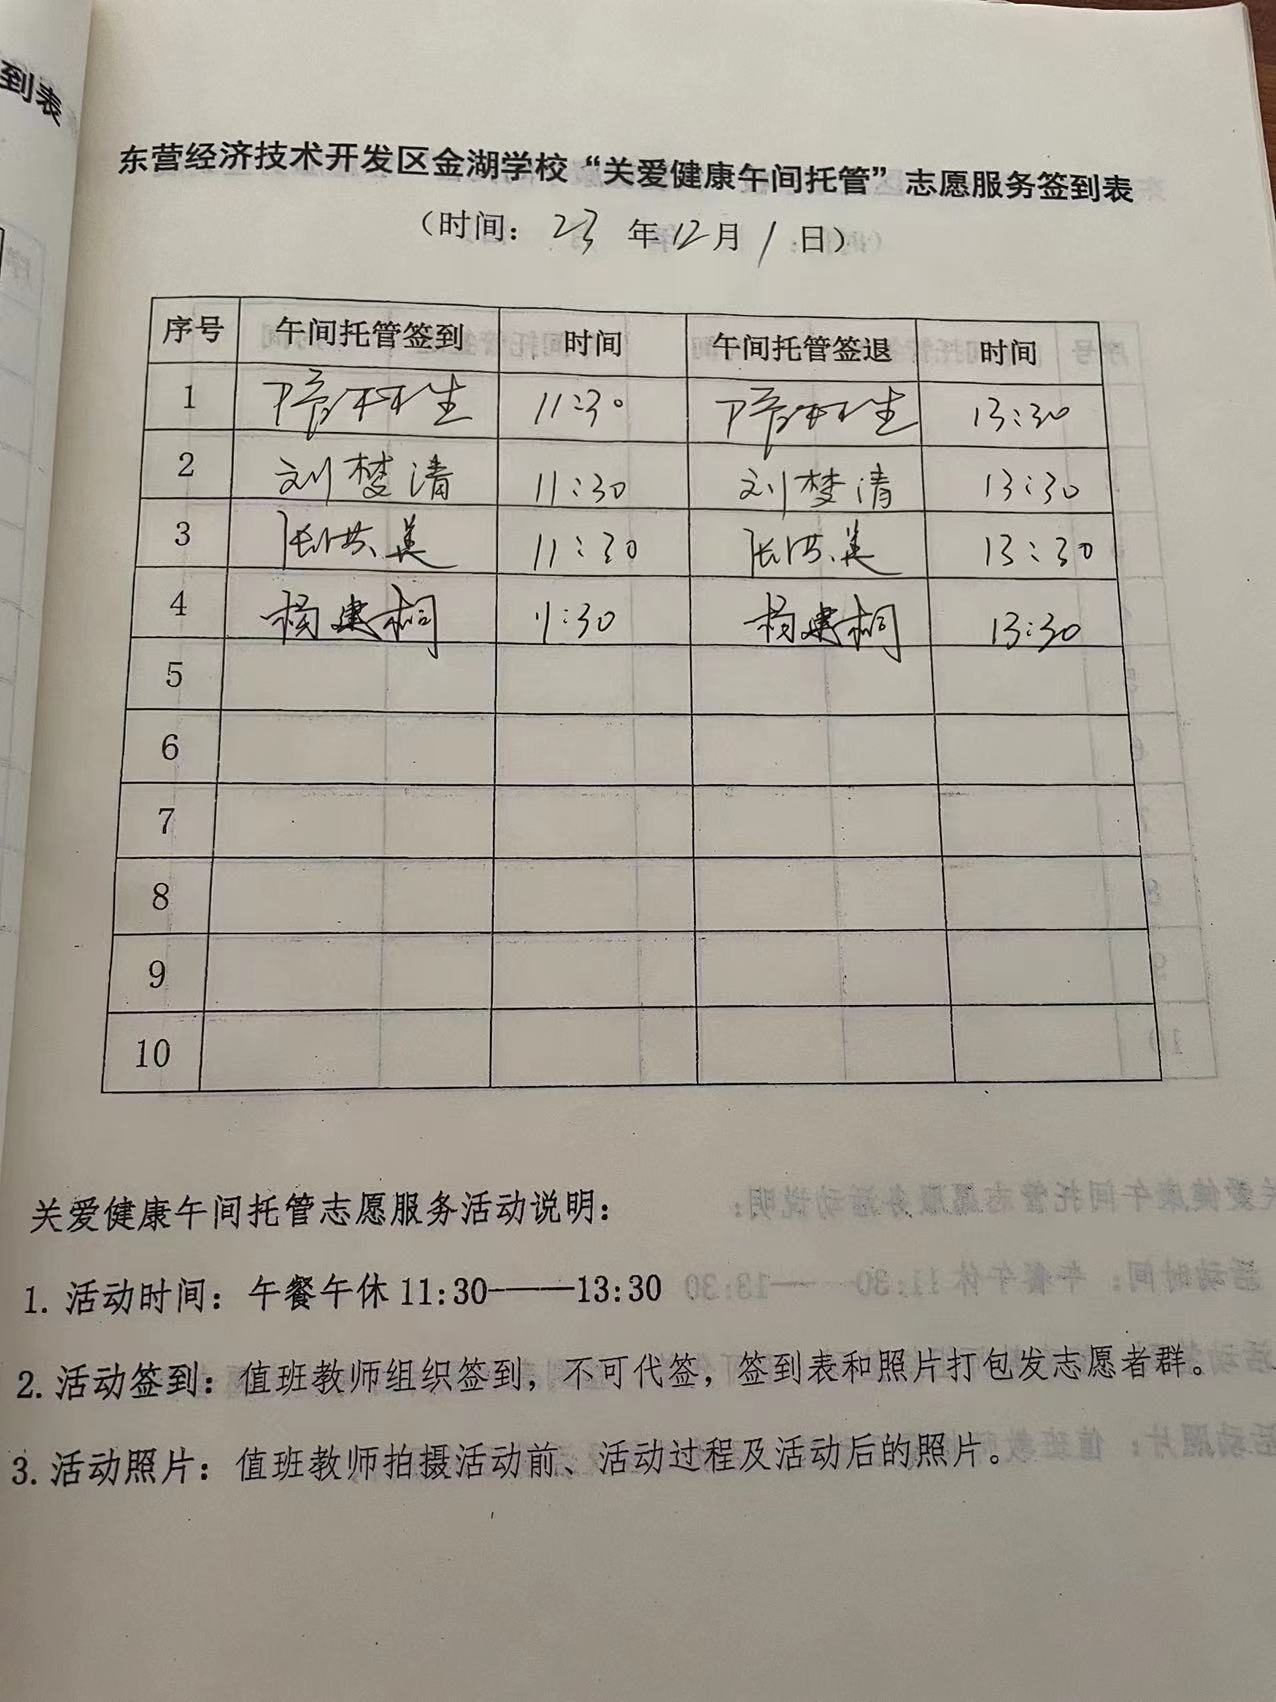 到表
东营经济技术开发区金湖学校“关爱健康午间托管”志愿服务签到表
（时间：23年12月1日）
序号 午间托管签到 时间 午间托管签退 时间
1 11:30 13:30
2 刘梦清 11:30 刘梦清 13:30
3 张洪美 11:30 张洪美 13:30
4 杨建桐 11:30 杨建桐 13:30
5
6
7
8
9
10
关爱健康午间托管志愿服务活动说明：
1. 活动时间：午餐午休11:30——13:30
2. 活动签到：值班教师组织签到，不可代签，签到表和照片打包发志愿者群。
3. 活动照片：值班教师拍摄活动前、活动过程及活动后的照片。